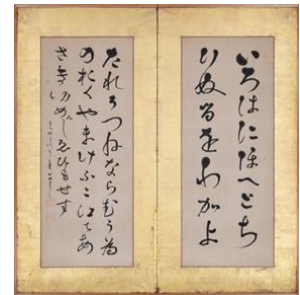 いろはにほへとち
りぬるをわかよ
たれそつねならむう為
のおくやまけふこ江てあ
さきゆめみしゑひもせす